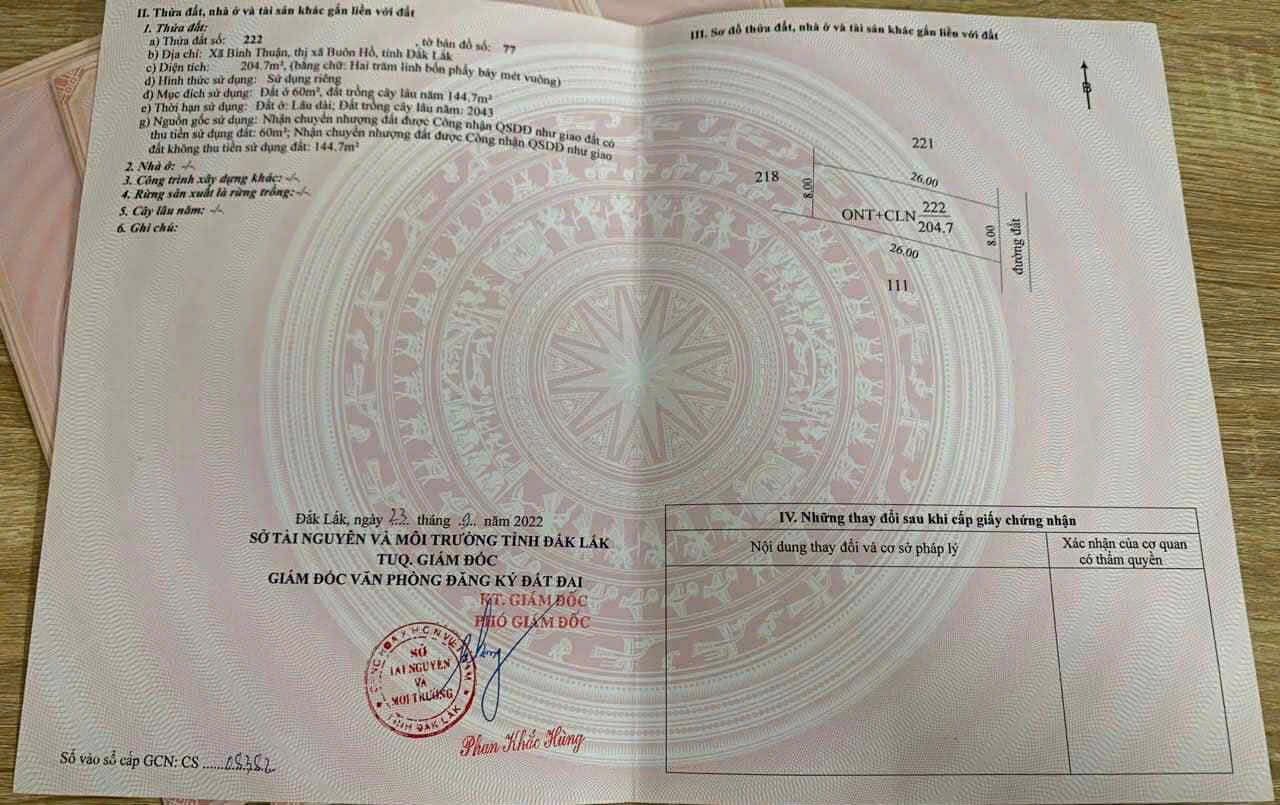 II. Thửa đất, nhà ở và tài sản khác gắn liền với đất
1. Thửa đất:
a) Thửa đất số: 222 , tờ bản đồ số: 77
b) Địa chỉ: Xã Bình Thuận, thị xã Buôn Hồ, tỉnh Đắk Lắk
c) Diện tích: 204.7m², (bằng chữ: Hai trăm linh bốn phẩy bảy mét vuông)
d) Hình thức sử dụng: Sử dụng riêng
đ) Mục đích sử dụng: Đất ở 60m², đất trồng cây lâu năm 144.7m²
e) Thời hạn sử dụng: Đất ở: Lâu dài; Đất trồng cây lâu năm: 2043
g) Nguồn gốc sử dụng: Nhận chuyển nhượng đất được Công nhận QSDĐ như giao đất có
thu tiền sử dụng đất: 60m²; Nhận chuyển nhượng đất được Công nhận QSDĐ như giao
đất không thu tiền sử dụng đất: 144.7m²
2. Nhà ở: -/-
3. Công trình xây dựng khác: -/-
4. Rừng sản xuất là rừng trồng: -/-
5. Cây lâu năm: -/-
6. Ghi chú:
Đắk Lắk, ngày 23 tháng 9 năm 2022
SỞ TÀI NGUYÊN VÀ MÔI TRƯỜNG TỈNH ĐẮK LẮK
TUQ. GIÁM ĐỐC
GIÁM ĐỐC VĂN PHÒNG ĐĂNG KÝ ĐẤT ĐAI
KT. GIÁM ĐỐC
PHÓ GIÁM ĐỐC
SỞ
TÀI NGUYÊN
VÀ
MÔI TRƯỜNG
TỈNH ĐẮK LẮK
Phan Khắc Hùng
Số vào sổ cấp GCN: CS ......08382
III. Sơ đồ thửa đất, nhà ở và tài sản khác gắn liền với đất
B
221
218
8.00
26.00
ONT+CLN 222
204.7
8.00
đường đất
26.00
111
IV. Những thay đổi sau khi cấp giấy chứng nhận
Nội dung thay đổi và cơ sở pháp lý
Xác nhận của cơ quan
có thẩm quyền